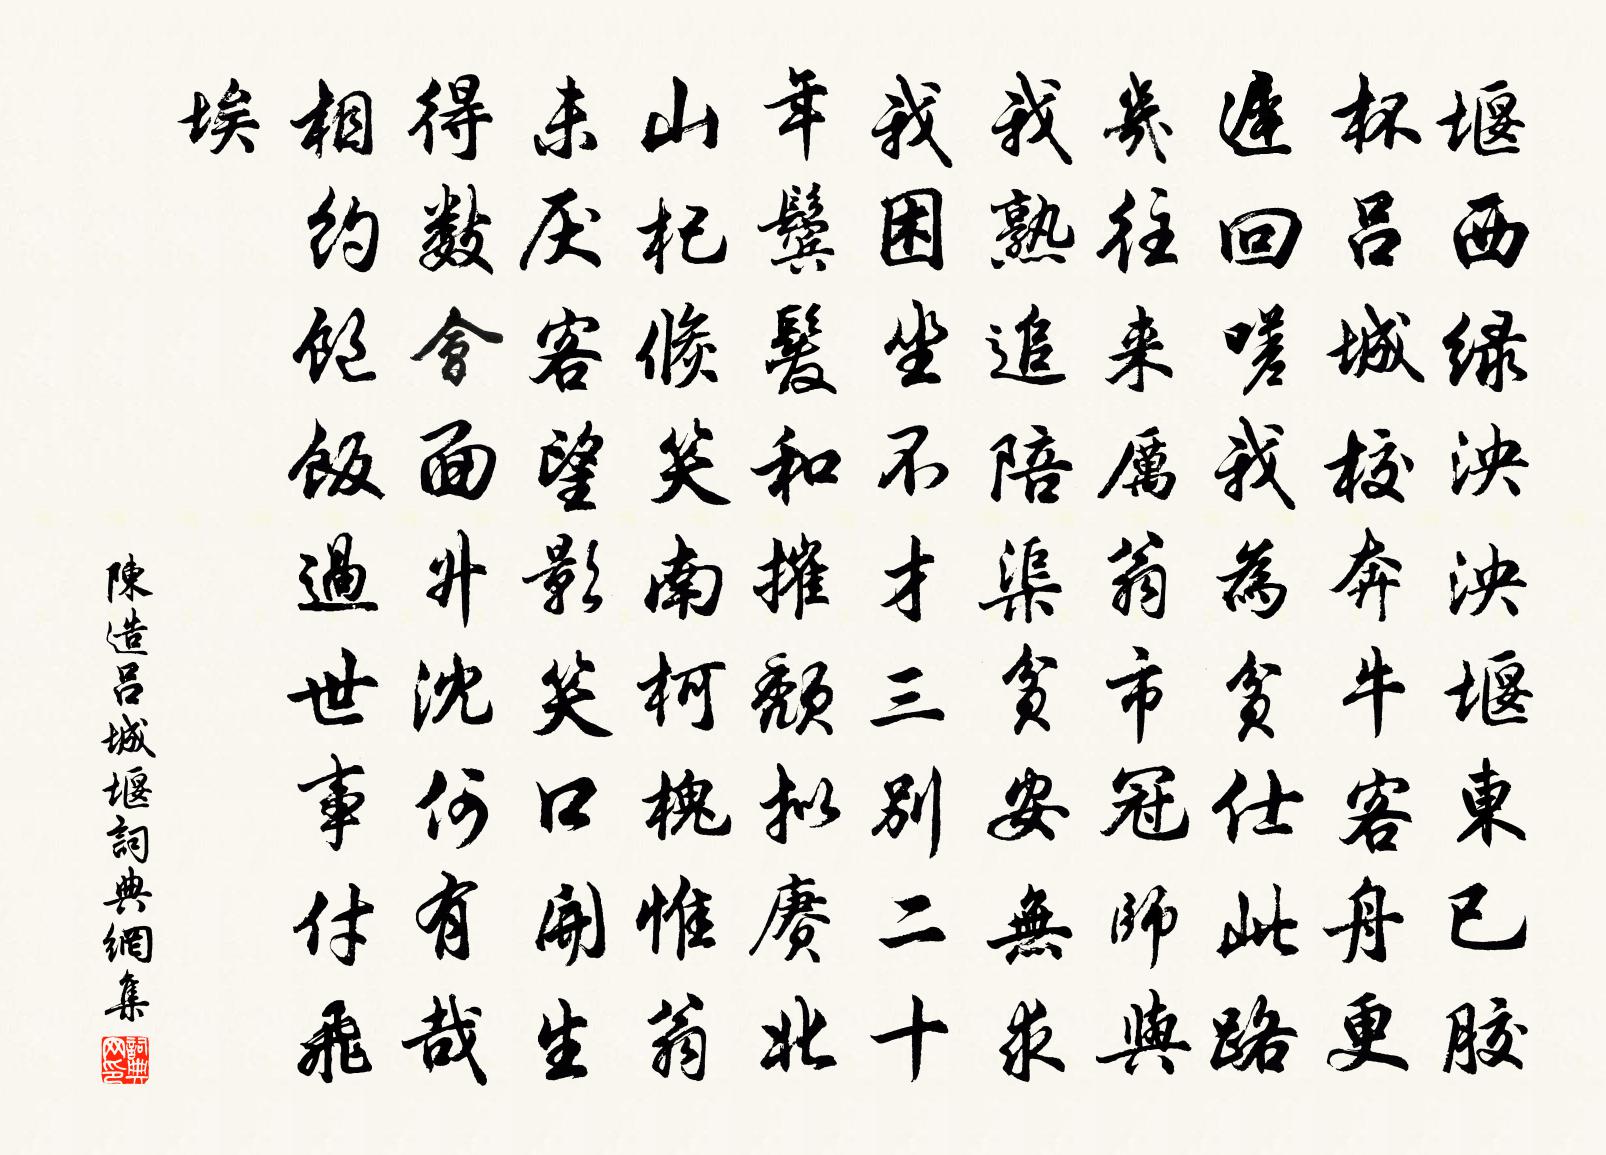 堰西緑泱泱堰東已胶
杯吕城校奔牛客舟更
遲回嗟我為貧仕此路
幾往来厲翁市冠師與
我熟追陪渠貧安無求
我困坐不才三别二十
年鬢髮和摧頹拟賡北
山杞倏笑南柯槐惟翁
未厌客望影笑口開生
得數會面升沈何有哉
相約飽飯過世事付飛
埃
陳造吕城堰詞典網集
詞典网印